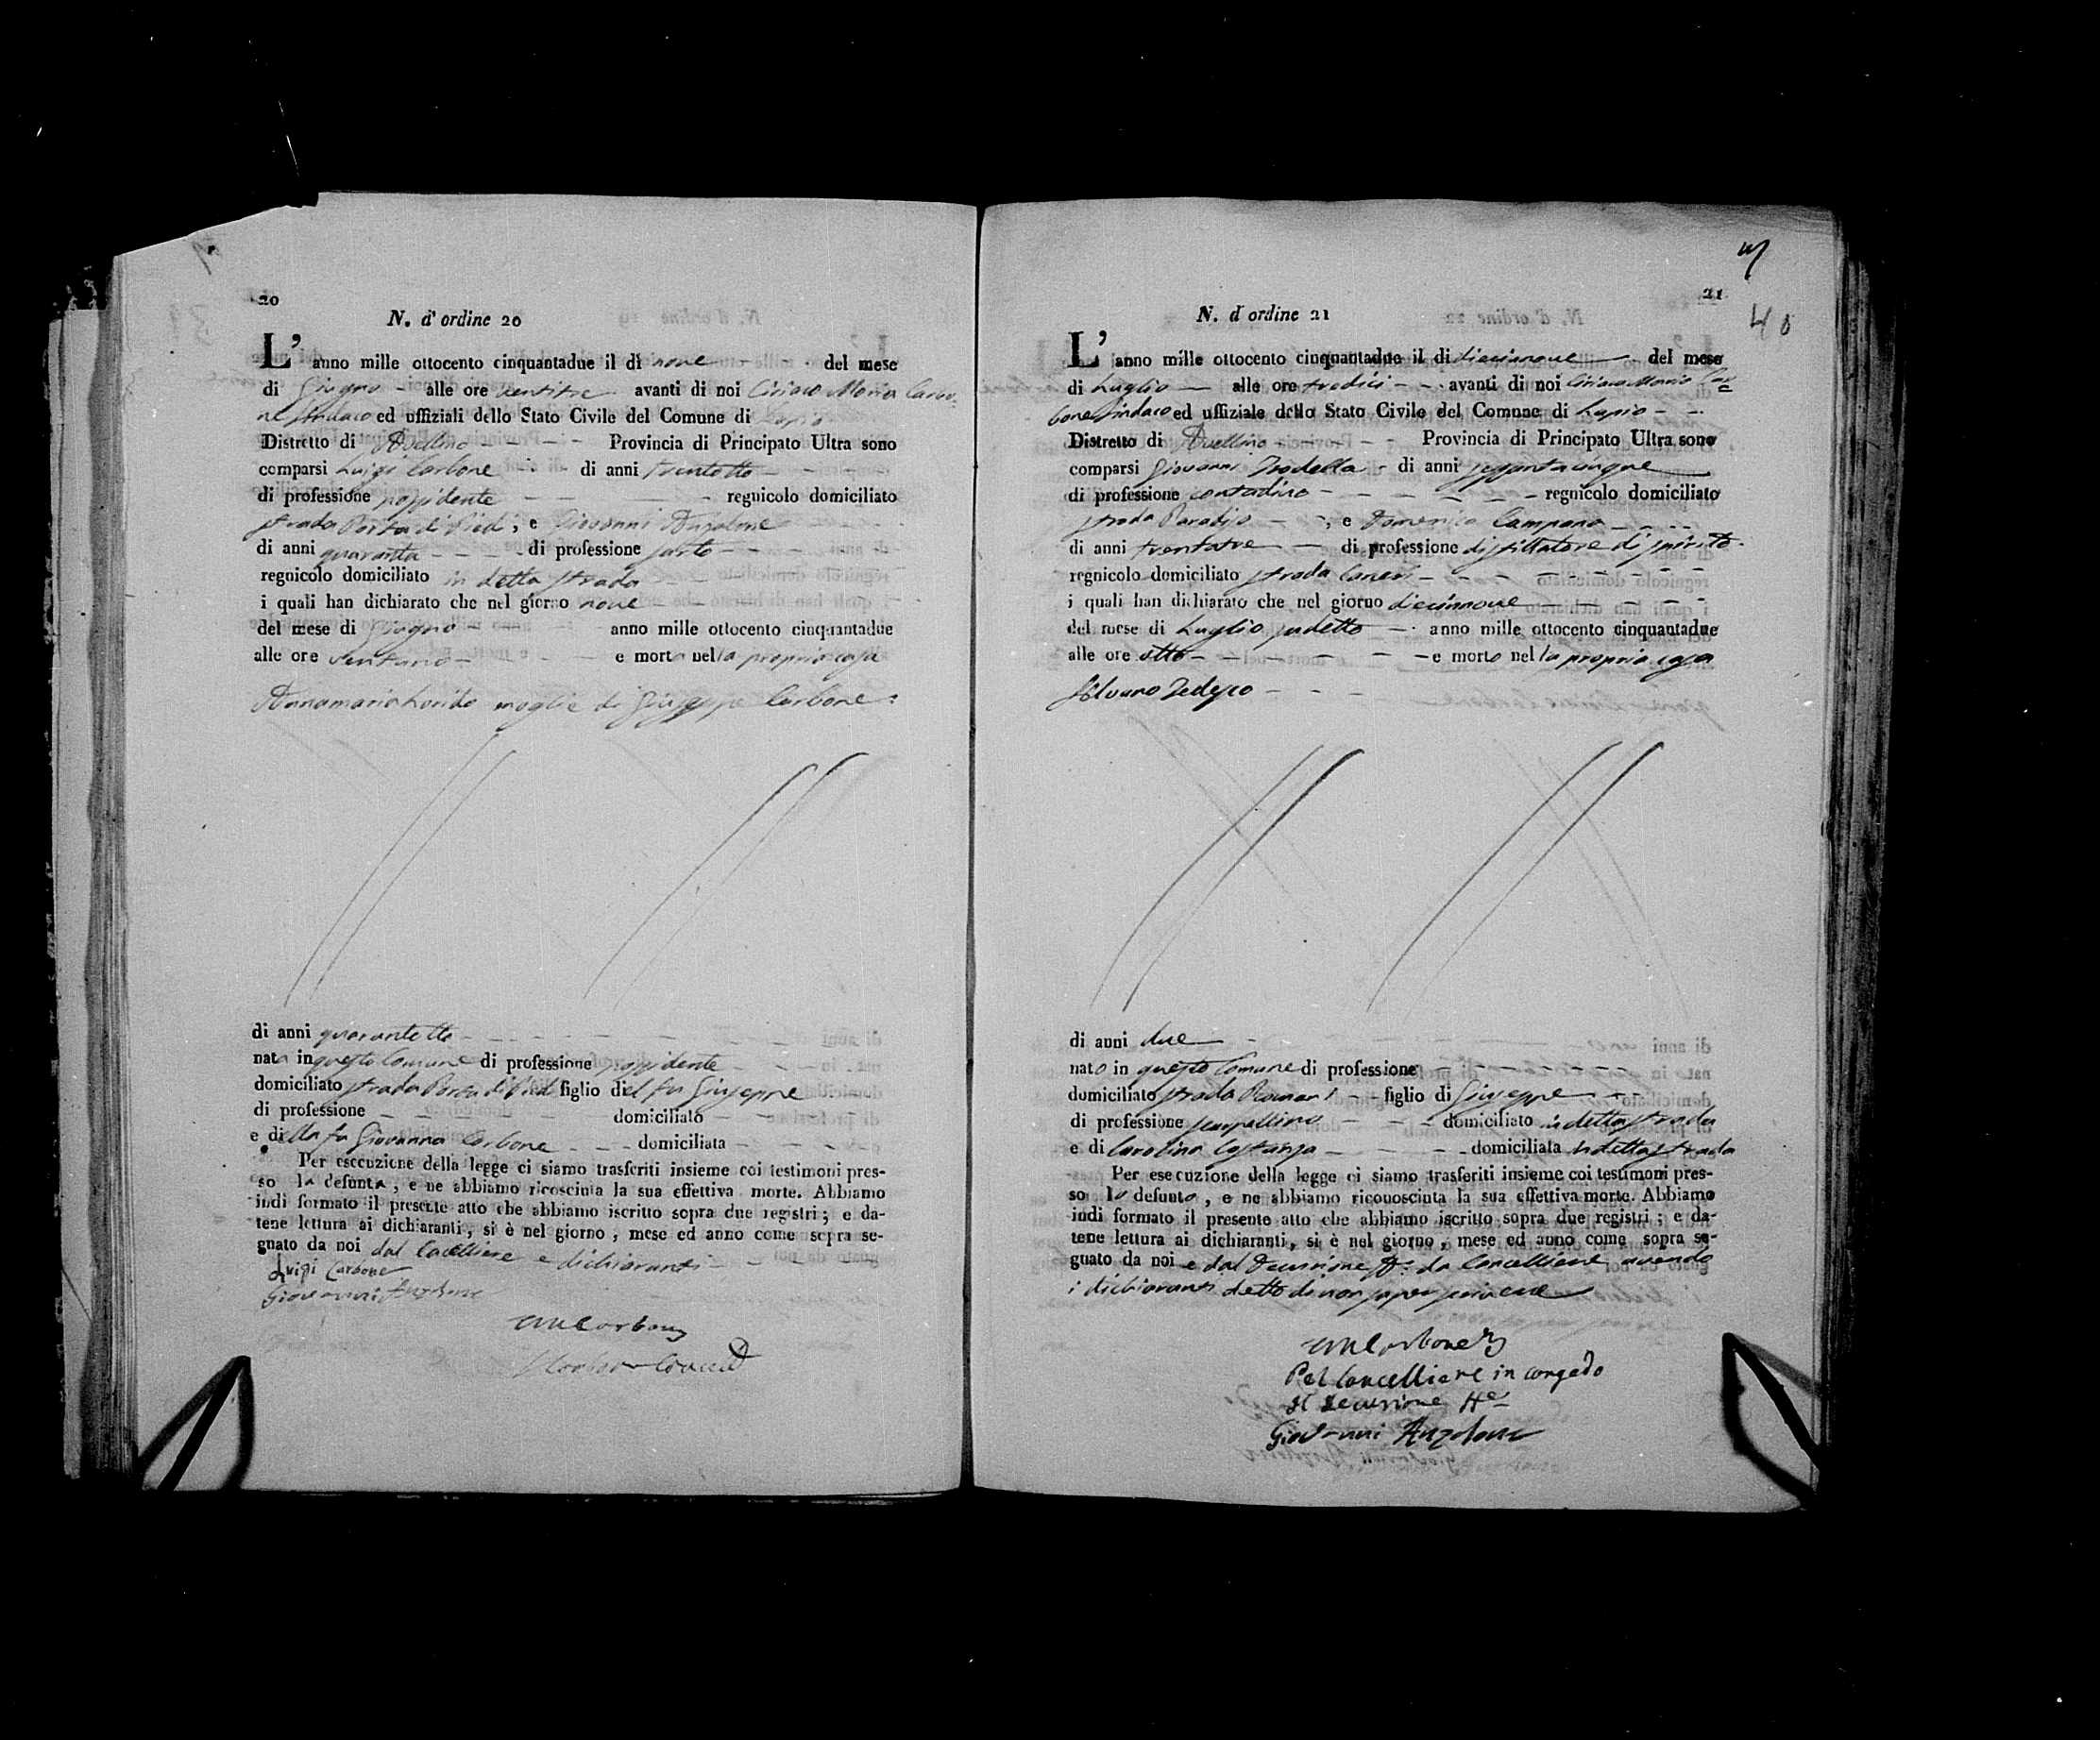 20
N. d' ordine 20
L' anno mille ottocento cinquantadue il dì nove del mese
di Giugno alle ore ventitre avanti di noi Ciriaco Maria Carbo-
ne Sindaco ed uffiziali dello Stato Civile del Comune di Lapio
Distretto di Avellino Provincia di Principato Ultra sono
comparsi Luigi Carbone di anni trentotto
di professione possidente regnicolo domiciliato
strada Porta di Piedi, e Giovanni Anzolone
di anni quaranta di professione sarto
regnicolo domiciliato in detta strada
i quali han dichiarato che nel giorno nove
del mese di Giugno anno mille ottocento cinquantadue
alle ore ventuno e morta nella propria casa
Annamaria moglie di Giuseppe Carbone
di anni quarantotto
nata in questo Comune di professione possidente
domiciliato strada Porta di Piedi figlio del fu Giuseppe
di professione domiciliato
e della fu Giovanna Carbone domiciliata
Per esecuzione della legge ci siamo trasferiti insieme coi testimoni pres-
so la defunta, e ne abbiamo ricosciuta la sua effettiva morte. Abbiamo
indi formato il presente atto che abbiamo iscritto sopra due registri; e da-
tene lettura ai dichiaranti, si è nel giorno, mese ed anno come sopra se-
gnato da noi dal Cancelliere e dichiaranti
Luigi Carbone
Giovanni Anzolone
CMCarbone
21
40
N. d ordine 21
L' anno mille ottocento cinquantadue il di diecinnove del mese
di Luglio alle ore tredici avanti di noi Ciriaco Maria Car-
bone Sindaco ed uffiziale dello Stato Civile del Comune di Lapio
Distretto di Avellino Provincia di Principato Ultra sono
comparsi Giovanni Trodella di anni sessantacinque
di professione contadino regnicolo domiciliato
strada Paradiso, e Domenico Campana
di anni trentatre di professione distillatore di spirito
regnicolo domiciliato strada
i quali han dichiarato che nel giorno diecinnove
del mese di Luglio sudetto anno mille ottocento cinquantadue
alle ore otto e morto nella propria casa
Silvano Tedesco
di anni due
nato in questo Comune di professione
domiciliato strada figlio di Giuseppe
di professione scarpellino domiciliato in detta strada
e di Carolina Costanza domiciliata in detta strada
Per esecuzione della legge ci siamo trasferiti insieme coi testimoni pres-
so lo defunto, e ne abbiamo riconosciuta la sua effettiva morte. Abbiamo
indi formato il presente atto che abbiamo iscritto sopra due registri; e da-
tene lettura ai dichiaranti, si è nel giorno, mese ed anno come sopra se-
gnato da noi e dal Decurione da Cancelliere avendo
i dichiaranti detto di non saper scrivere
CMCarbone
Pel Cancelliere in congedo
Il Decurione
Giovanni Anzolone